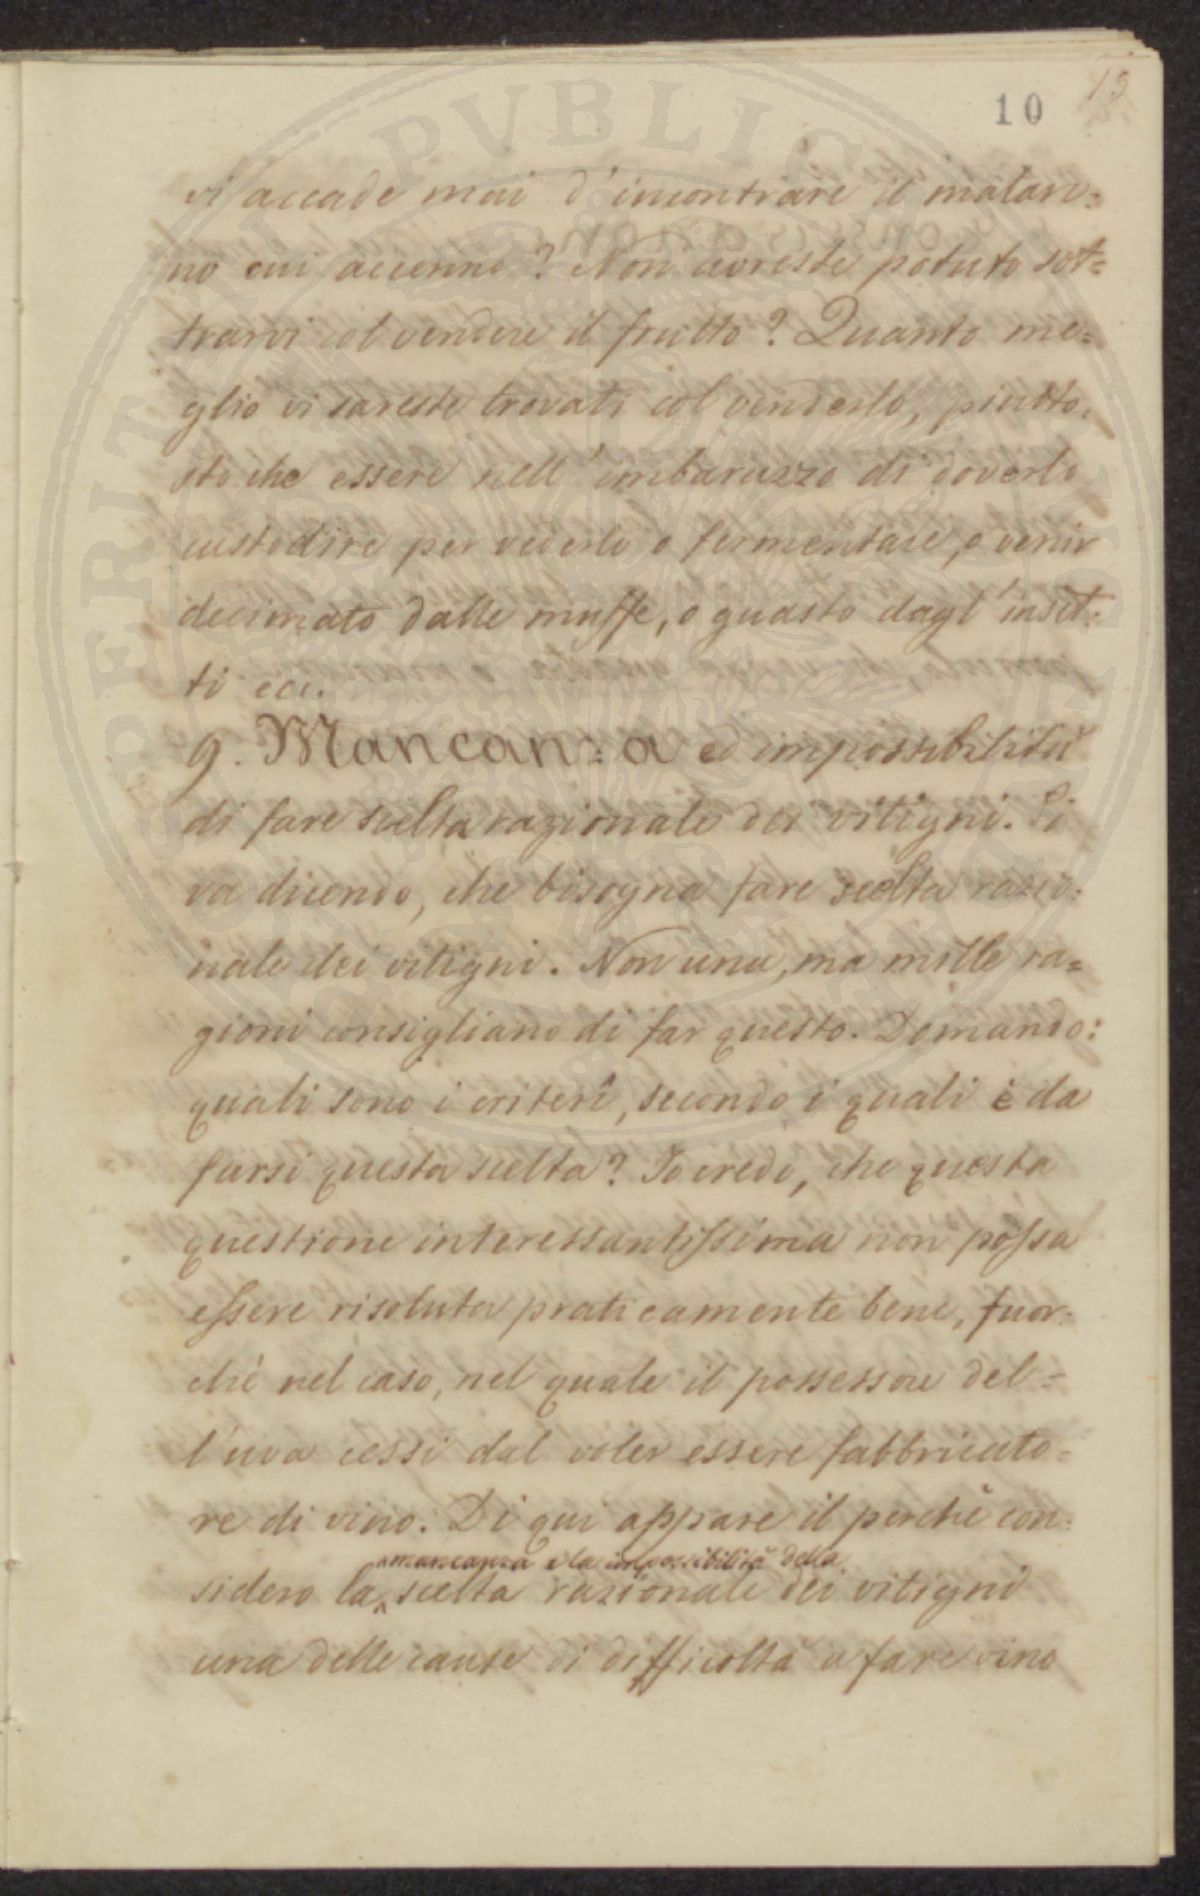 10
15
vi accade mai d'incontrare il malan=
no cui accenno? Non avreste potuto sot=
trarvi col vendere il frutto? Quanto me=
glio vi sareste trovati col venderlo, piutto=
sto che essere nell'imbarazzo di doverlo
custodire per vederlo o fermentare, o venir
decimato dalle muffe, o guasto dagl'inset=
ti ecc.
9. Mancanza ed impossibilità
di fare scelta razionale dei vitigni. Si
va dicendo, che bisogna fare scelta razio=
nale dei vitigni. Non una, ma mille ra=
gioni consigliano di far questo. Domando:
quali sono i criterî, secondo i quali è da
farsi questa scelta? Io credo, che questa
questione interessantissima non possa
essere risoluta praticamente bene, fuor=
chè nel caso, nel quale il possessore del=
l'uva cessi dal voler essere fabbricato=
re di vino. Di qui appare il perchè con=
mancanza e la impossibilità della
sidero la scelta razionale dei vitigni
una delle cause di difficoltà a fare vino